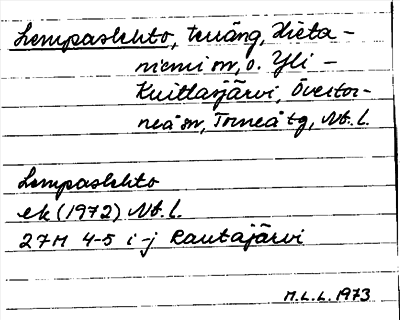 Lempaslehto, terräng, Hieta-
niemi sn, o. Yli-
Kuittasjärvi, Övertor-
neå sn, Torneå tg, Nb. l.
Lempaslehto
ek (1972) Nb. l.
27M 4-5 i-j Rautajärvi
M.L.L. 1973